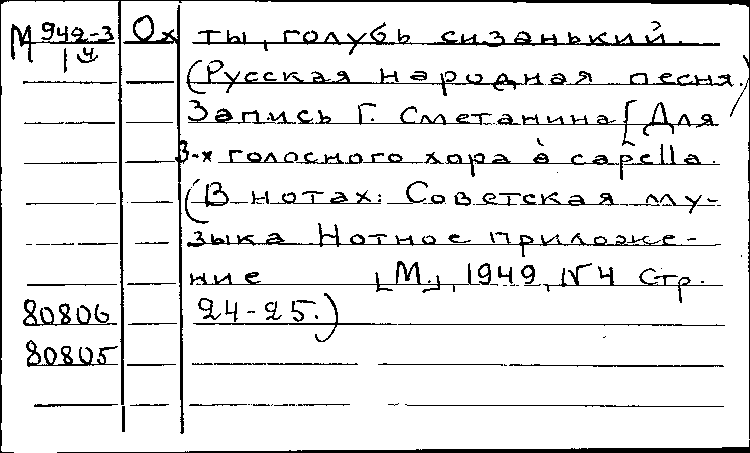 М 942-3 Ох ты, голубь сизанький.
14
(Русская народная песня.)
Запись Г. Сметанина [Для
3-х голосного хора à capella.
(В нотах: Советская му-
зыка Нотное приложе-
ние [М.], 1949, № 4 Стр.
80806 24-25.)
80805